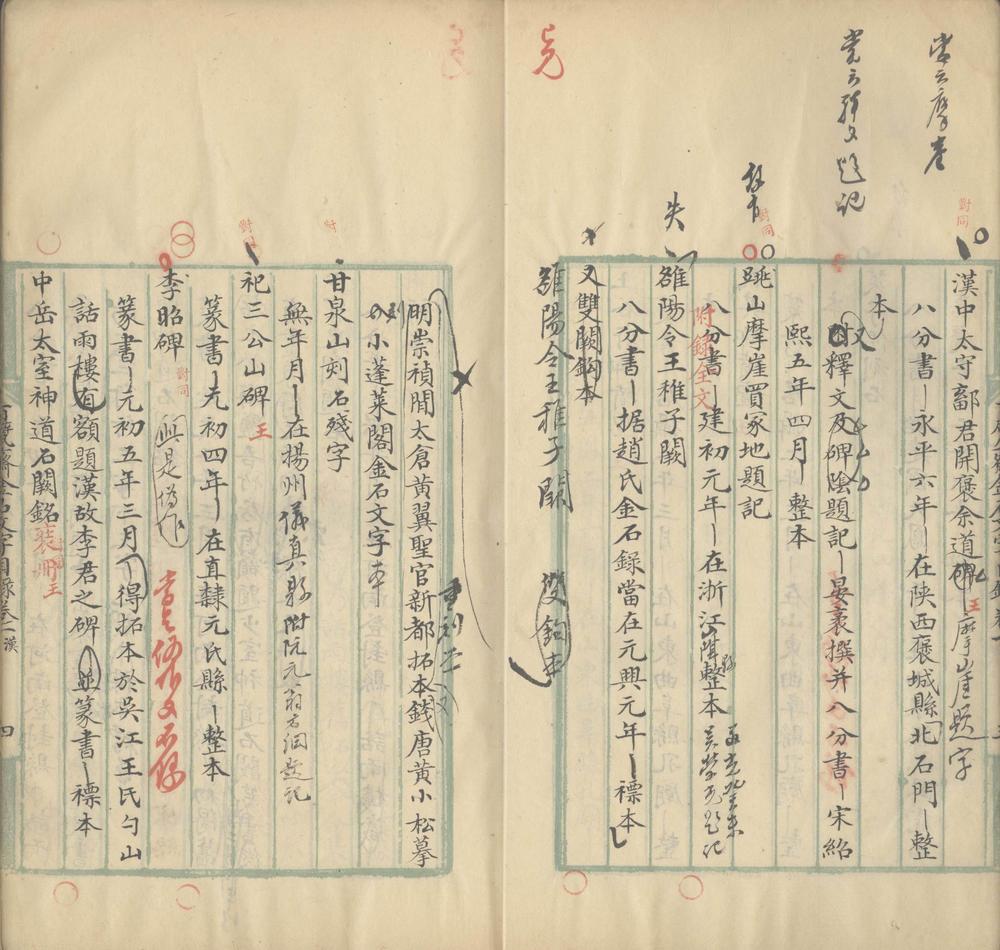 當云摩崖
當云釋文題記
漢中太守鄐君開褒余道碑 王 摩崖題字
對同
八分書 永平六年 在陝西褒城縣北石門 整
本
又釋文及碑陰題記 晏袤撰并八分書 宋紹
熙五年四月 整本
跳山摩崖買冢地題記
對同
八分書 建初元年 在浙江山陰縣 整本
附錄全文
失
雒陽令王稚子闕
八分書 據趙氏金石錄當在元興元年 褾本
又雙闕鈎本
雒陽令王稚子闕 雙鈎本
明崇禎閒太倉黃翼聖官新都拓本錢唐黃小松摹
重刻
小蓬萊閣金石文字本
甘泉山刻石殘字
對
無年月 在揚州儀真縣 附阮元翁方綱題記
祀三公山碑 王
對同
篆書 元初四年 在直隸元氏縣 整本
李昭碑
對同
篆書 元初五年三月 得拓本於吳江王氏勺山
話雨樓 有額題漢故李君之碑 並篆書 褾本
中岳太室神道石闕銘
四